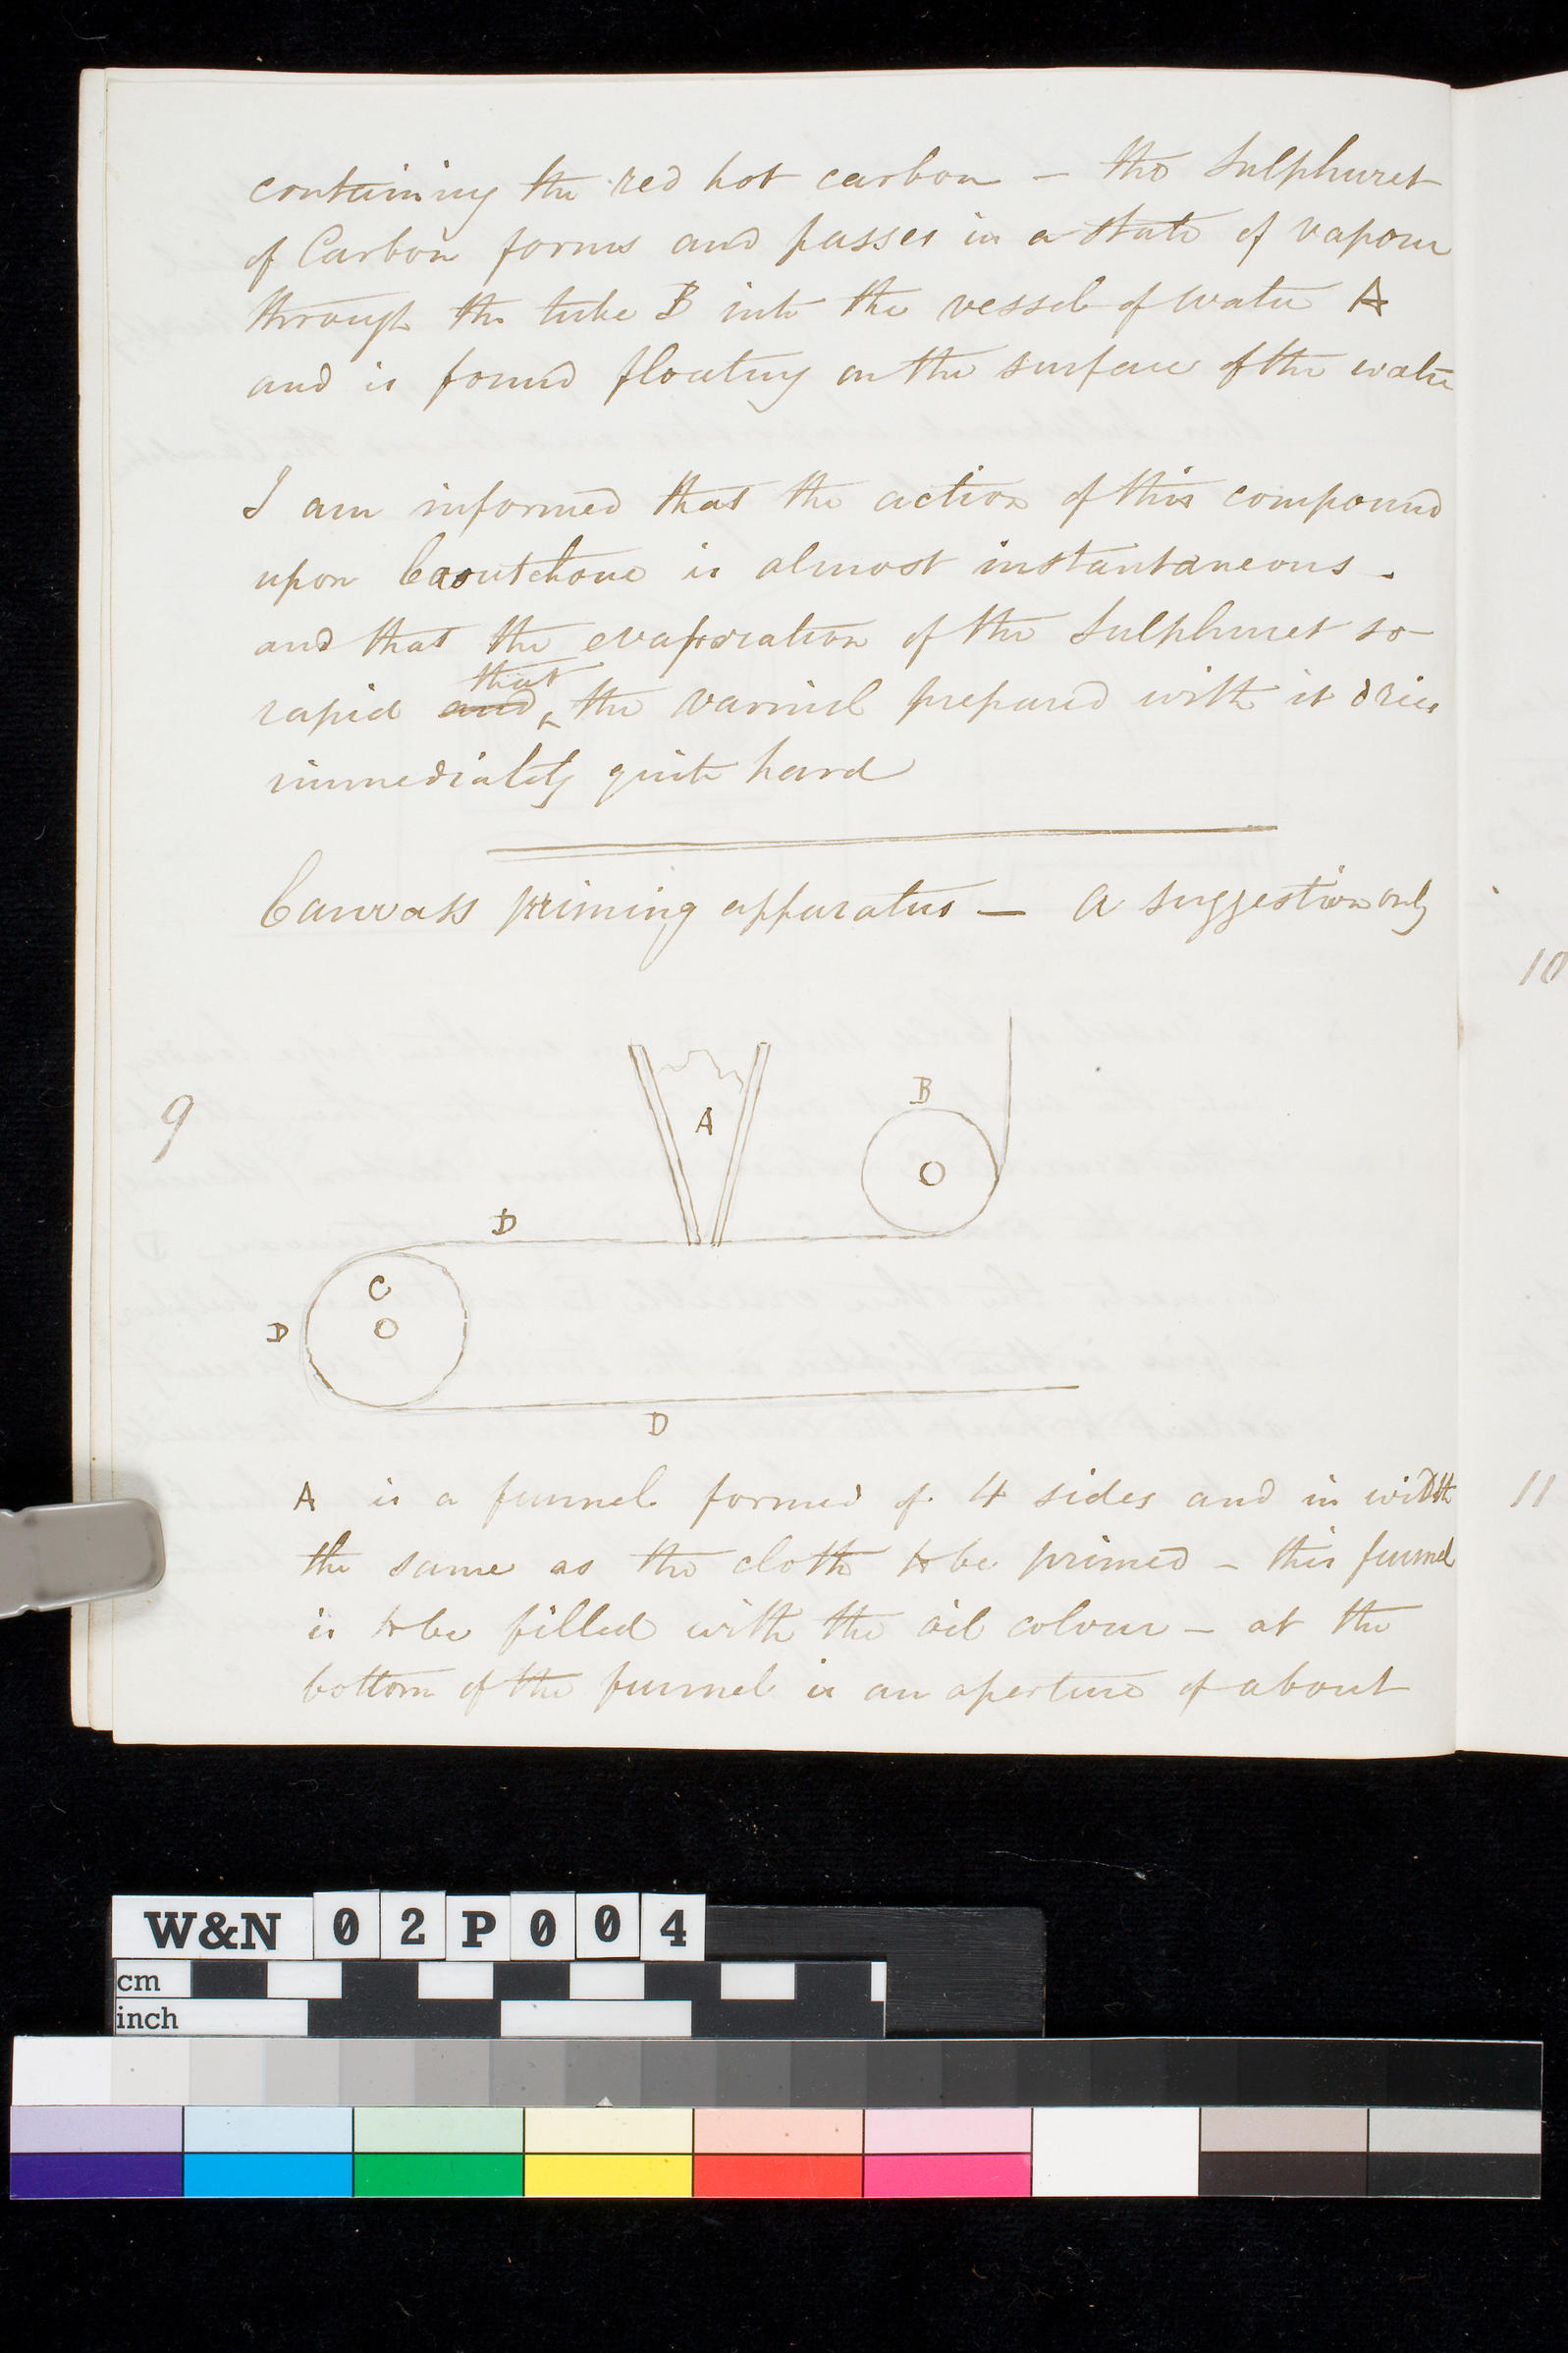 containing the red hot carbon – the Sulphuret
of Carbon forms and passes in a state of vapour
through the tube B into the vessel of water A
and is found floating on the surface of the water
I am informed that the action of this compound
upon Caoutchouc is almost instantaneous.
and that the evaporation of the Sulphuret so
that
rapid and ‸ the varnish prepared with it dries
immediately quite hard
Canvass priming apparatus — A suggestion only
10
9
A
B
D
C
D
D
A is a funnel formed of 4 sides and in width
11
the same as the cloth to be primed – this funnel
is to be filled with the oil colour – at the
bottom of the funnel is an aperture of about
W&N 02P004
cm
inch